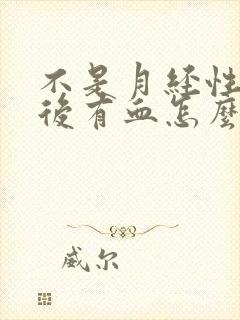 不是月经性
後有血怎麼
威尔